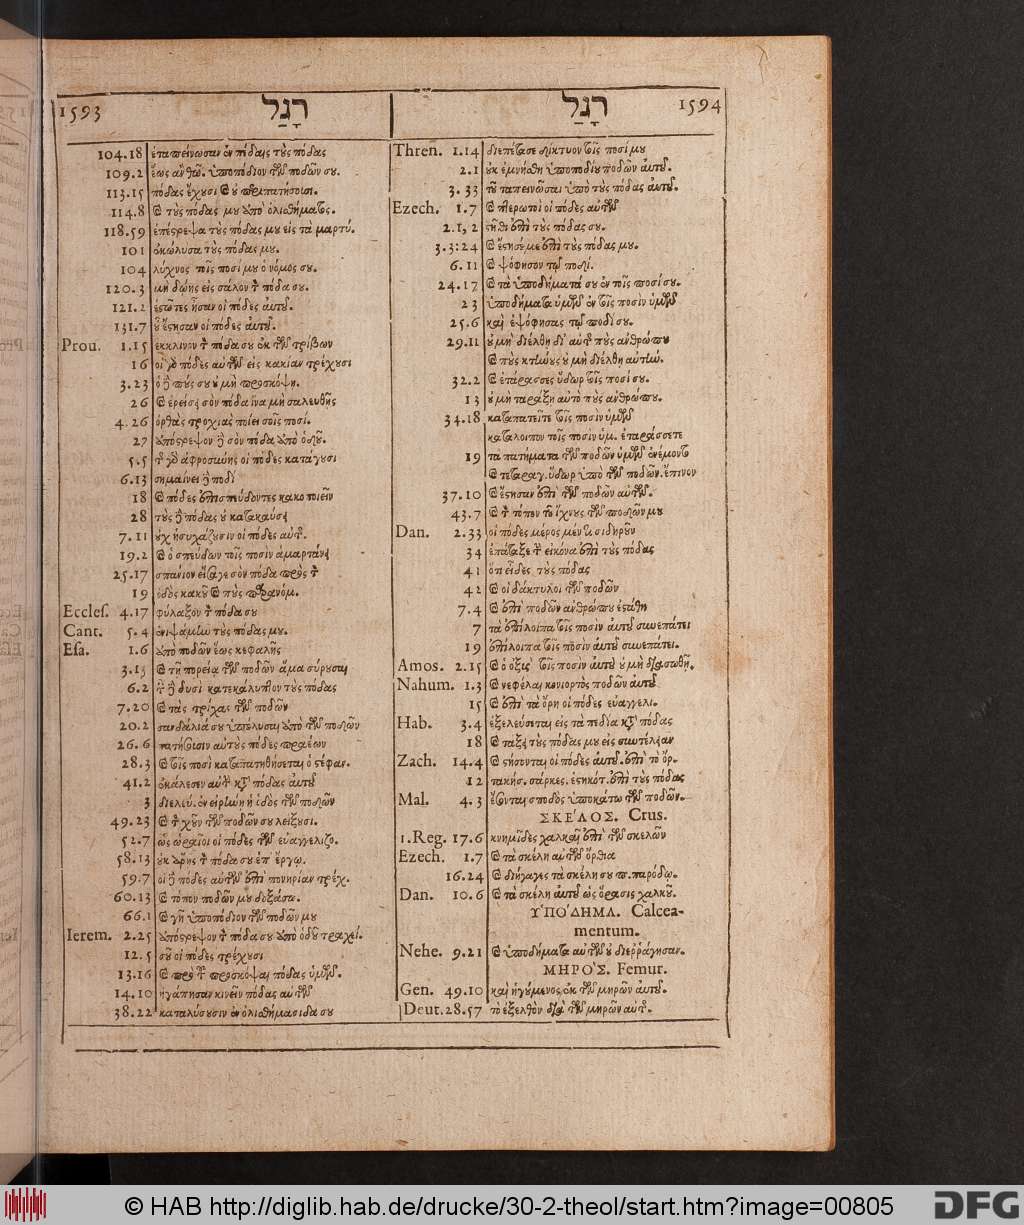 1593 רָגַל
104.18 ἐταπείνωσαν ἐν πέδαις τοὺς πόδας
109.2 ἕως ἂν θῶ. ὑποπόδιον τῶν ποδῶν σου.
113.15 πόδας ἔχουσι καὶ οὐ περιπατήσουσι.
114.8 καὶ τοὺς πόδας μου ἀπὸ ὀλισθήματος.
118.59 ἐπέστρεψα τοὺς πόδας μου εἰς τὰ μαρτύ.
101 ἐκώλυσα τοὺς πόδας μου.
104 λύχνος τοῖς ποσί μου ὁ νόμος σου.
120.3 μὴ δώῃς εἰς σάλον τὸν πόδα σου.
121.2 ἑστῶτες ἦσαν οἱ πόδες αὐτοῦ.
131.7 οὗ ἔστησαν οἱ πόδες αὐτοῦ.
Prou. 1.15 ἔκκλινον τὸν πόδα σου ἐκ τῶν τρίβων
16 οἱ γὰρ πόδες αὐτῶν εἰς κακίαν τρέχουσι
3.23 ὁ δὲ πούς σου οὐ μὴ προσκόψῃ.
26 καὶ ἐρείσει σὸν πόδα ἵνα μὴ σαλευθῇς
4.26 ὀρθὰς τροχιὰς ποίει σοῖς ποσί.
27 ἀπόστρεψον δὲ σὸν πόδα ἀπὸ ὁδοῦ.
5.5 τῆς γὰρ ἀφροσύνης οἱ πόδες κατάγουσι
6.13 σημαίνει δὲ ποδὶ
18 καὶ πόδες ἐπισπεύδοντες κακοποιεῖν
28 τοὺς δὲ πόδας οὐ κατακαύσει
7.11 οὐχ ἡσυχάζουσιν οἱ πόδες αὐτῆς.
19.2 καὶ ὁ σπεύδων τοῖς ποσὶν ἁμαρτάνει
25.17 σπάνιον εἴσαγε σὸν πόδα πρὸς τὸν
19 ὁδὸς κακοῦ καὶ ποὺς παρανόμ.
Eccles. 4.17 φύλαξον τὸν πόδα σου
Cant. 5.4 ἐνιψάμην τοὺς πόδας μου.
Esa. 1.6 ἀπὸ ποδῶν ἕως κεφαλῆς
3.15 καὶ τῇ πορείᾳ τῶν ποδῶν ἅμα σύρουσαι
6.2 ταῖς δὲ δυσὶ κατεκάλυπτον τοὺς πόδας
7.20 καὶ τὰς τρίχας τῶν ποδῶν
20.2 σανδάλιά σου ὑπόλυσαι ἀπὸ τῶν ποδῶν
26.6 πατήσουσιν αὐτοὺς πόδες πραέων
28.3 καὶ τοῖς ποσὶ καταπατηθήσεται ὁ στέφαν.
41.2 ἐκάλεσεν αὐτὴν κατὰ πόδας αὐτοῦ
3 διελεύ. ἐν εἰρήνῃ ἡ ὁδὸς τῶν ποδῶν
49.23 καὶ τὸν χοῦν τῶν ποδῶν σου λείξουσι.
52.7 ὡς ὡραῖοι οἱ πόδες τῶν εὐαγγελιζο.
58.13 οὐκ ἄρῃς τὸν πόδα σου ἐπ' ἔργῳ.
59.7 οἱ δὲ πόδες αὐτῶν ἐπὶ πονηρίαν τρέχ.
60.13 καὶ τόπον ποδῶν μου δοξάσω.
66.1 καὶ γῆ ὑποπόδιον τῶν ποδῶν μου
Ierem. 2.25 ἀπόστρεψον τὸν πόδα σου ἀπὸ ὁδοῦ τραχεί.
12.5 σοῦ οἱ πόδες τρέχουσι
13.16 καὶ πρὸ τοῦ προσκόψαι πόδας ὑμῶν.
14.10 ἠγάπησαν κινεῖν πόδας αὐτῶν
38.22 καταλύσουσιν ἐν ὀλισθήμασι πόδα σου
רָגַל 1594
Thren. 1.14 διεπέτασε δίκτυον τοῖς ποσί μου
2.1 οὐκ ἐμνήσθη ὑποποδίου ποδῶν αὐτοῦ.
3.33 τοῦ ταπεινῶσαι ὑπὸ τοὺς πόδας αὐτοῦ.
Ezech. 1.7 καὶ πτερωτοὶ οἱ πόδες αὐτῶν
2.1,2 στῆθι ἐπὶ τοὺς πόδας σου.
3.3:24 καὶ ἔστησέ με ἐπὶ τοὺς πόδας μου.
6.11 καὶ ψόφησον τῷ ποδί.
24.17 καὶ τὰ ὑποδήματά σου ἐν τοῖς ποσί σου.
23 ὑποδήματα ὑμῶν ἐν τοῖς ποσὶν ὑμῶν
25.6 καὶ ἐψόφησας τῷ ποδί σου.
29.11 οὐ μὴ διέλθῃ δι' αὐτῆς ποὺς ἀνθρώπου
καὶ ποὺς κτήνους οὐ μὴ διέλθῃ αὐτήν.
32.2 καὶ ἐτάρασσες ὕδωρ τοῖς ποσί σου.
13 οὐ μὴ ταράξῃ αὐτὸ ποὺς ἀνθρώπου.
34.18 καταπατεῖτε τοῖς ποσὶν ὑμῶν
κατάλοιπον τοῖς ποσὶν ὑμ. ἐταράσσετε
19 τὰ πατήματα τῶν ποδῶν ὑμῶν ἐνέμοντο
καὶ τεταραγ. ὕδωρ ὑπὸ τῶν ποδῶν. ἔπινον
37.10 καὶ ἔστησαν ἐπὶ τῶν ποδῶν αὐτῶν.
43.7 καὶ τὸν τόπον τοῦ ἴχνους τῶν ποδῶν μου
Dan. 2.33 οἱ πόδες μέρος μέν τι σιδηροῦν
34 ἐπάταξε τὴν εἰκόνα ἐπὶ τοὺς πόδας
41 ὅτι εἶδες τοὺς πόδας
42 καὶ οἱ δάκτυλοι τῶν ποδῶν
7.4 καὶ ἐπὶ ποδῶν ἀνθρώπου ἐστάθη
7 τὰ ἐπίλοιπα τοῖς ποσὶν αὐτοῦ συνεπάτει
19 ἐπίλοιπα τοῖς ποσὶν αὐτοῦ συνεπάτει.
Amos. 2.15 καὶ ὁ ὀξὺς τοῖς ποσὶν αὐτοῦ οὐ μὴ διασωθῇ.
Nahum. 1.3 καὶ νεφέλαι κονιορτὸς ποδῶν αὐτοῦ
15 καὶ ἐπὶ τὰ ὄρη οἱ πόδες εὐαγγελι.
Hab. 3.4 ἐξελεύσεται εἰς τὰ πεδία κατὰ πόδας
18 καὶ τάξει τοὺς πόδας μου εἰς συντέλειαν
Zach. 14.4 καὶ στήσονται οἱ πόδες αὐτοῦ. ἐπὶ τὸ ὄρ.
12 τακήσ. σάρκες. ἑστηκότ. ἐπὶ τοὺς πόδας
Mal. 4.3 ἔσονται σποδὸς ὑποκάτω τῶν ποδῶν.
ΣΚΕΛΟΣ. Crus.
1.Reg. 17.6 κνημῖδες χαλκαῖ ἐπὶ τῶν σκελῶν
Ezech. 1.7 καὶ τὰ σκέλη αὐτῶν ὄρθια
16.24 καὶ διήγαγες τὰ σκέλη σου π. παρόδῳ.
Dan. 10.6 καὶ τὰ σκέλη αὐτοῦ ὡς ὅρασις χαλκοῦ.
ΥΠΟΔΗΜΑ. Calcea-
mentum.
Nehe. 9.21 καὶ ὑποδήματα αὐτῶν οὐ διεῤῥάγησαν.
ΜΗΡΟΣ. Femur.
Gen. 49.10 καὶ ἡγούμενος ἐκ τῶν μηρῶν αὐτοῦ.
Deut. 28.57 τὸ ἐξελθὸν διὰ τῶν μηρῶν αὐτῆς.
© HAB http://diglib.hab.de/drucke/30-2-theol/start.htm?image=00805
DFG